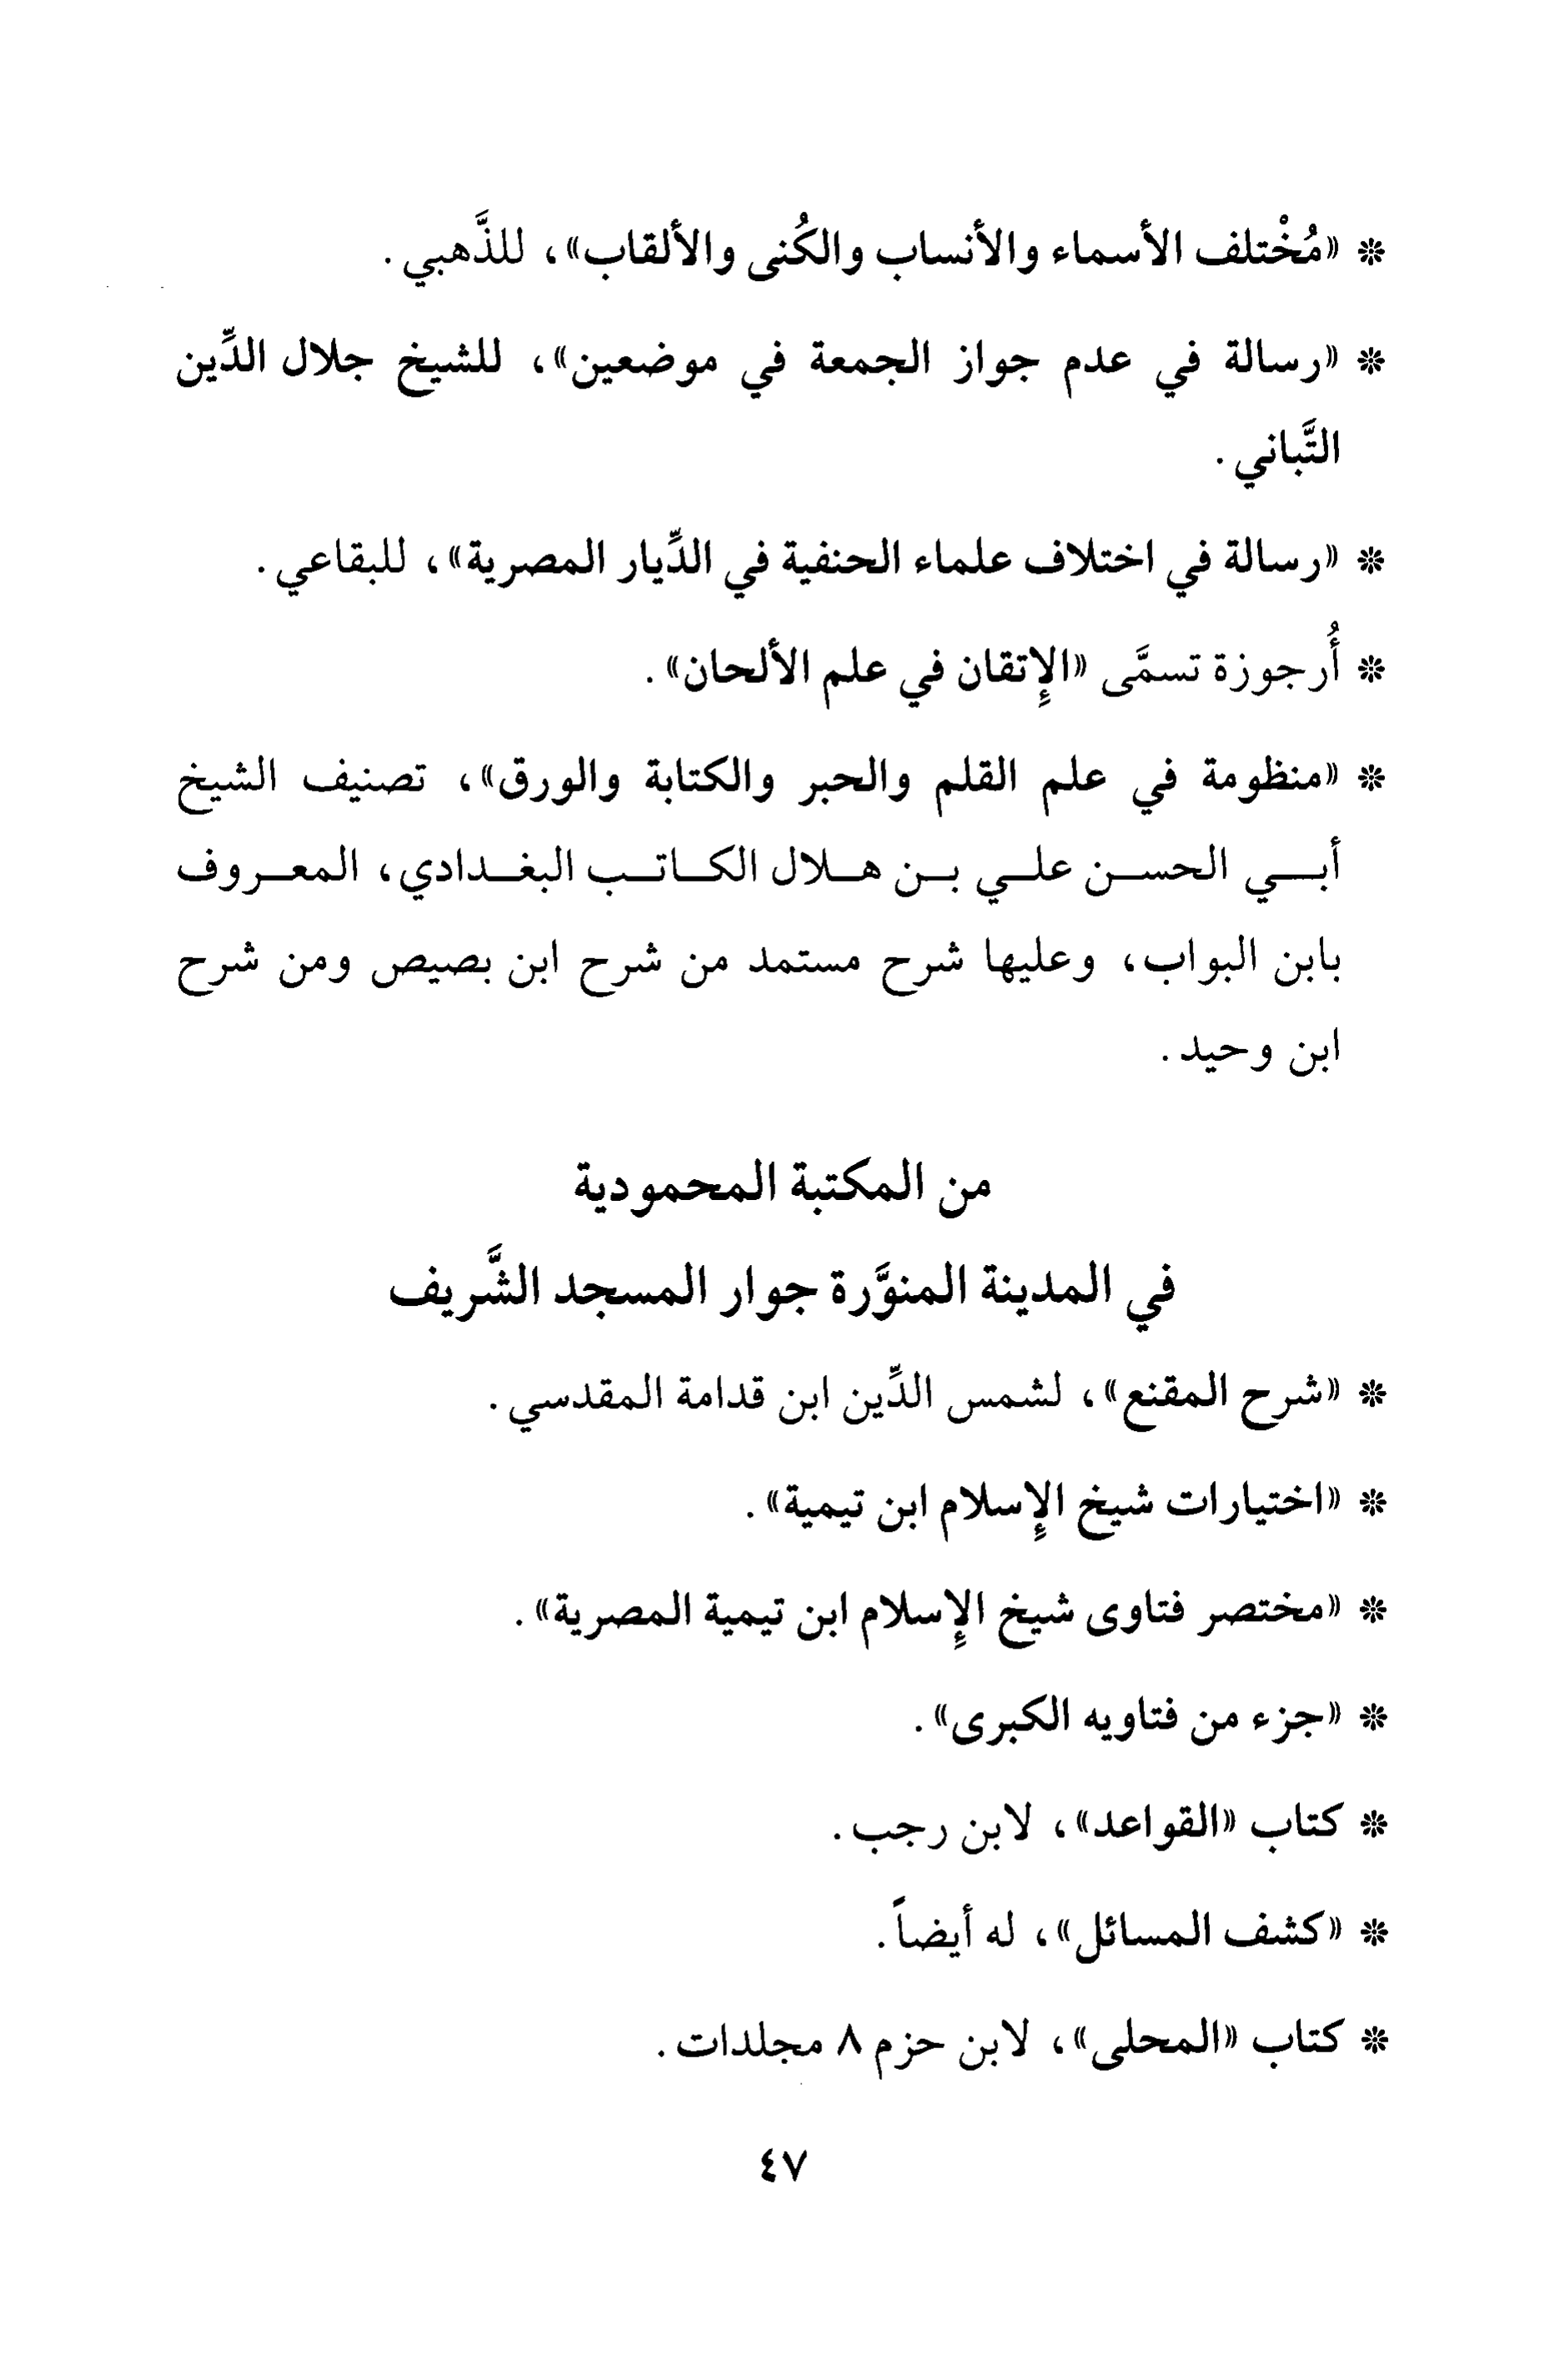 * «مُخْتلف الأسماء والأنساب والكُنى والألقاب»، للذَّهبي.
* «رسالة في عدم جواز الجمعة في موضعين»، للشيخ جلال الدِّين
التَّباني.
* «رسالة في اختلاف علماء الحنفية في الدِّيار المصرية»، للبقاعي.
* أُرجوزة تسمَّى «الإِتقان في علم الألحان».
* «منظومة في علم القلم والحبر والكتابة والورق»، تصنيف الشيخ
أبـي الحسن علي بن هلال الكاتب البغدادي، المعروف
بابن البواب، وعليها شرح مستمد من شرح ابن بصيص ومن شرح
ابن وحيد.
من المكتبة المحمودية
في المدينة المنوَّرة جوار المسجد الشَّريف
* «شرح المقنع»، لشمس الدِّين ابن قدامة المقدسي.
* «اختيارات شيخ الإِسلام ابن تيمية».
* «مختصر فتاوى شيخ الإِسلام ابن تيمية المصرية».
* «جزء من فتاويه الكبرى».
* كتاب «القواعد»، لابن رجب.
* «كشف المسائل»، له أيضاً.
* كتاب «المحلى»، لابن حزم ٨ مجلدات.
٤٧